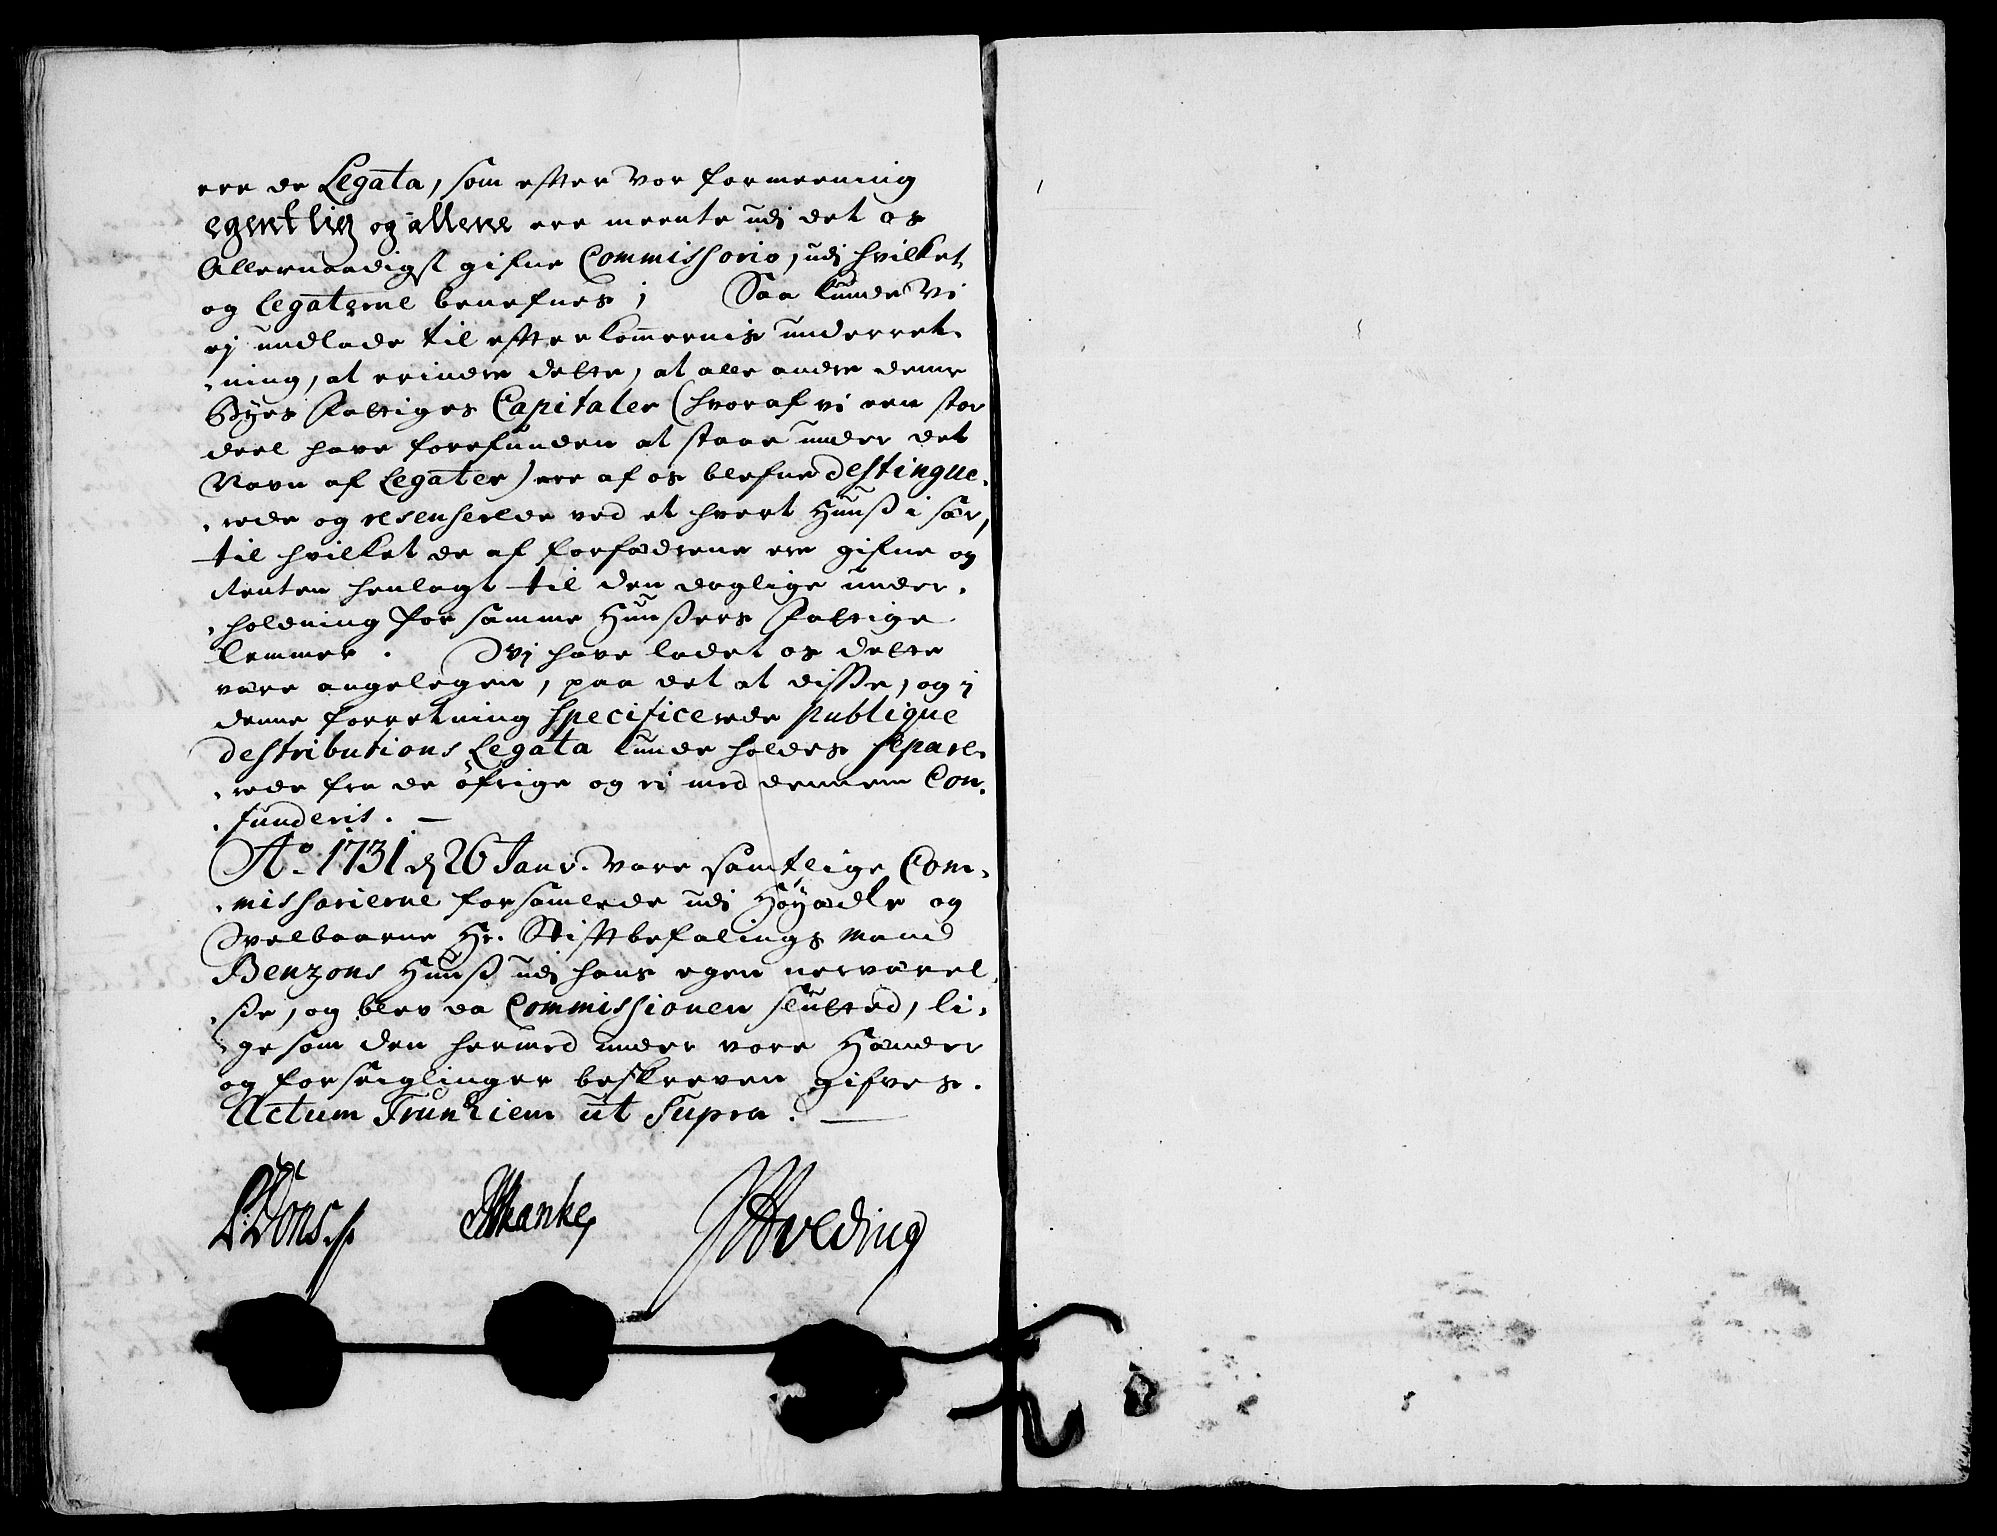 ere de Legata, som efter vor formeening
egentlig og allene ere meente udj det os
Allernaadigst gifne Commissorio, udj hvilket
og Legaterne benefnes; Saa kunde Vi
ej undlade til efterkommernis underret-
-ning, at erindre dette, at alle andre denne
Byes Fattiges Capitaler (hvoraf vi een stor
deel have forefunden at staae under det
Navn af Legater) ere af os blefne destingue-
-rede og resenserede ved et hvert Huuß i sær,
til hvilket de af forfædrene ere gifne og
Renten henlagt til den daglige under-
-holdning for samme Huußers Fattige
Lemmer. Vj have ladet os dette
være angelegen, paa det at disse, og j
denne forretning specificerede publique
destributions Legata kunde holdes separe-
-rede fra de öfrige og ej med dennem Con-
-funderis. —
Ao. 1731 d 26 Janv. Vare samtlige Com-
-missarierne forsamlede udj Höyædle og
Velbaarne Hr. Stiftbefalings Mand
Benzons Huuß udj hans egen nerværel-
-ße, og blev da Commissionen slutted, li-
-ge som den hermed under vore Hænder
og forseiglinger beskreven gifves.
Actum Trunhiem ut Supra. —
Dons
Hveding